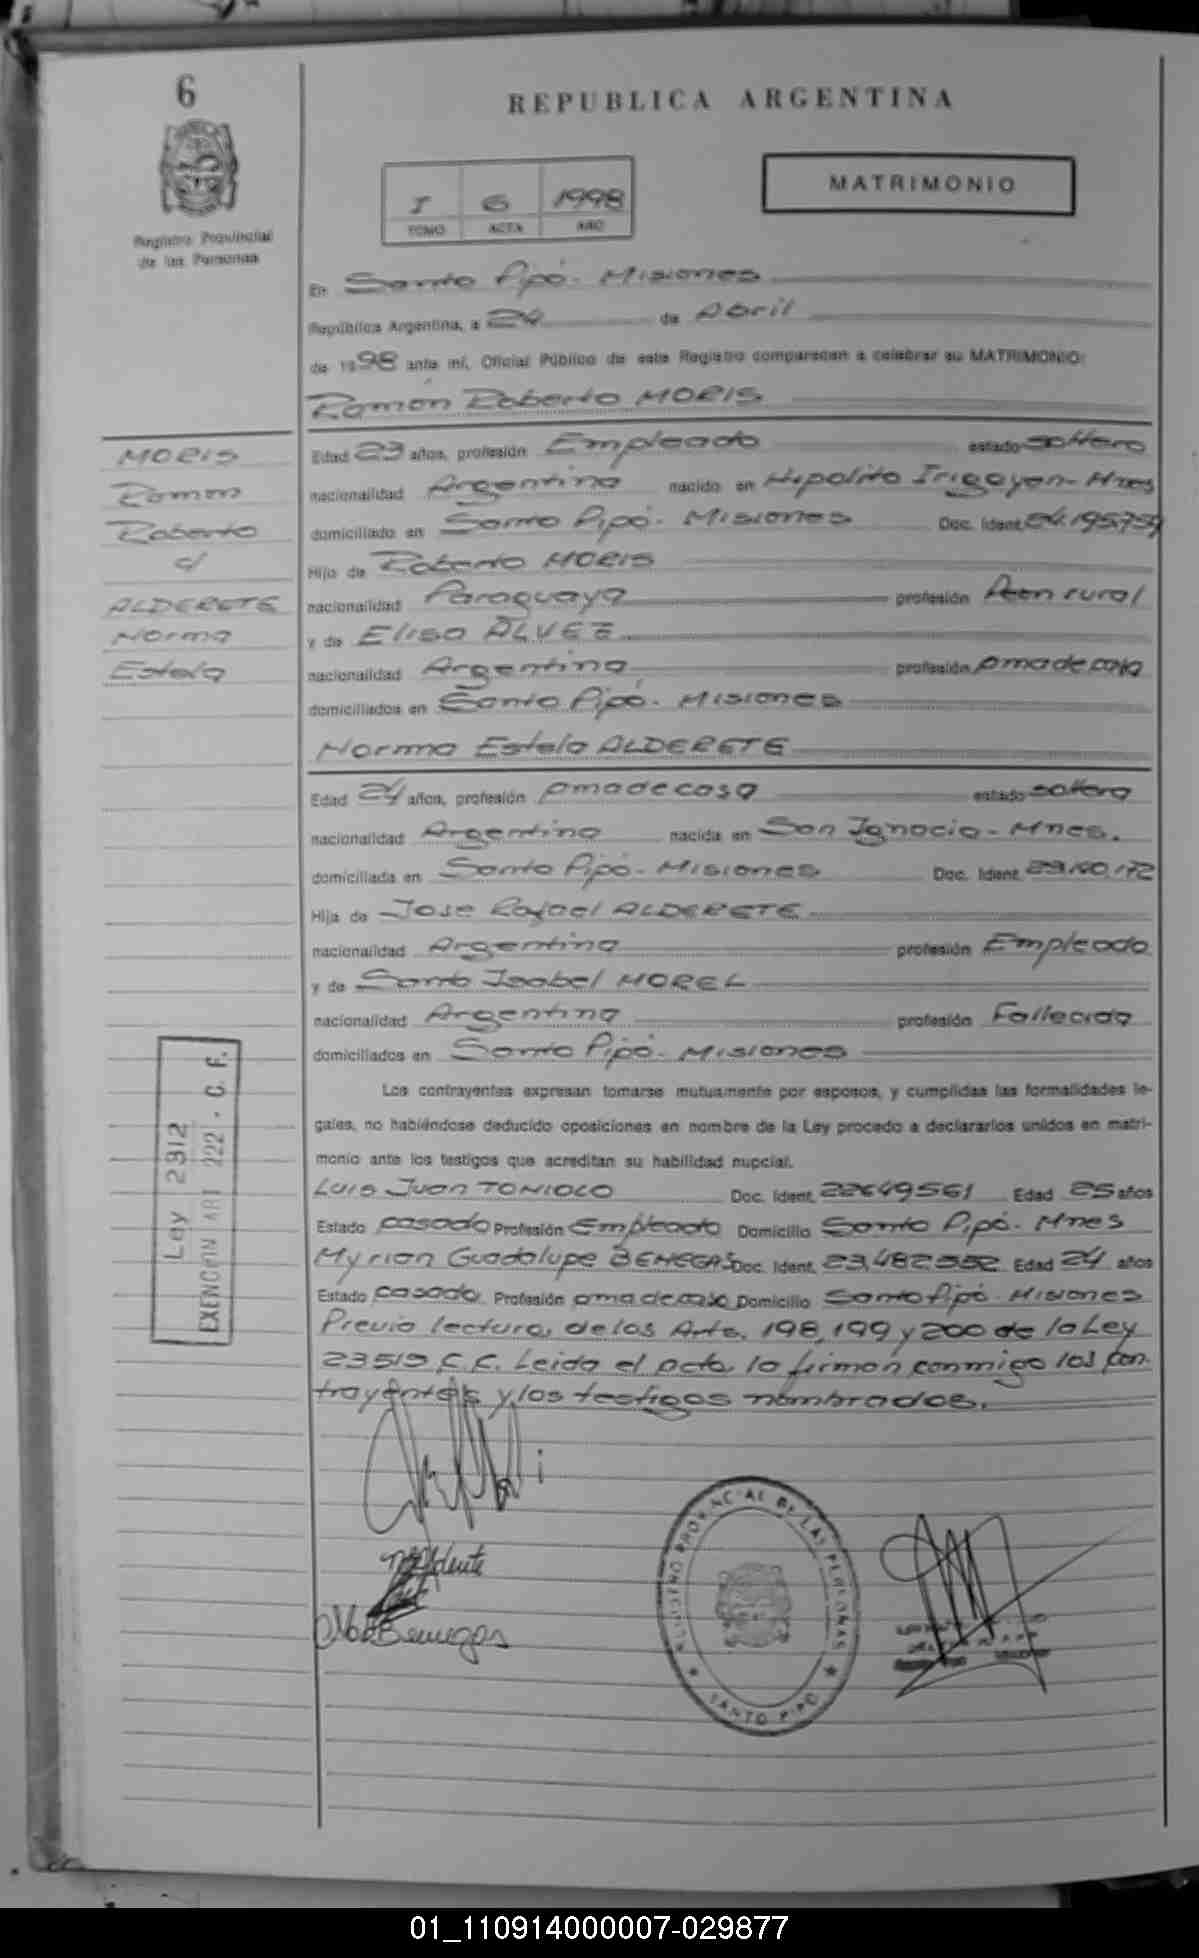 6
REPUBLICA ARGENTINA
Registro Provincial
de las Personas
I 6 1998
TOMO ACTA AÑO
MATRIMONIO
En Santo Pipó - Misiones
República Argentina, a 24 de Abril
de 1998 ante mí, Oficial Público de este Registro comparecen a celebrar su MATRIMONIO:
Ramón Roberto MORIS
MORIS
Ramon
Roberto
c/
ALDERETE
Norma
Estela
Edad 23 años, profesión Empleado estado soltero
nacionalidad Argentina nacido en Hipolito Irigoyen - Mnes
domiciliado en Santo Pipó - Misiones Doc. Ident.
Hijo de Roberto MORIS
nacionalidad Paraguaya profesión Peon rural
y de Elisa ALVEZ
nacionalidad Argentina profesión ama de casa
domiciliados en Santo Pipó - Misiones
Norma Estela ALDERETE
Edad 24 años, profesión ama de casa estado soltera
nacionalidad Argentina nacida en San Ignacio - Mnes.
domiciliada en Santo Pipó - Misiones Doc. Ident. 23.140.172
Hija de Jose Rafael ALDERETE
nacionalidad Argentina profesión Empleado
y de Santa Isabel MOREL
nacionalidad Argentina profesión Fallecida
domiciliados en Santo Pipó - Misiones
Los contrayentes expresan tomarse mutuamente por esposos, y cumplidas las formalidades le-
gales, no habiéndose deducido oposiciones en nombre de la Ley procedo a declararlos unidos en matri-
monio ante los testigos que acreditan su habilidad nupcial.
Luis Juan TONIOLO Doc. Ident. 22649561 Edad 25 años
Estado casado Profesión Empleado Domicilio Santo Pipó - Mnes
Myrian Guadalupe BENEGAS Doc. Ident. 23.482.552 Edad 24 años
Estado casada Profesión ama de casa Domicilio Santo Pipó - Misiones
Previa lectura, de los Arts. 198, 199 y 200 de la Ley
23515 C.C. Leida el acta, la firman conmigo los con-
trayentes y los testigos nombrados.
Ley 2312
EXENCION ART 222 . C. F.
Benegas
REGISTRO PROVINCIAL DE LAS PERSONAS
SANTO PIPO
01_110914000007-029877